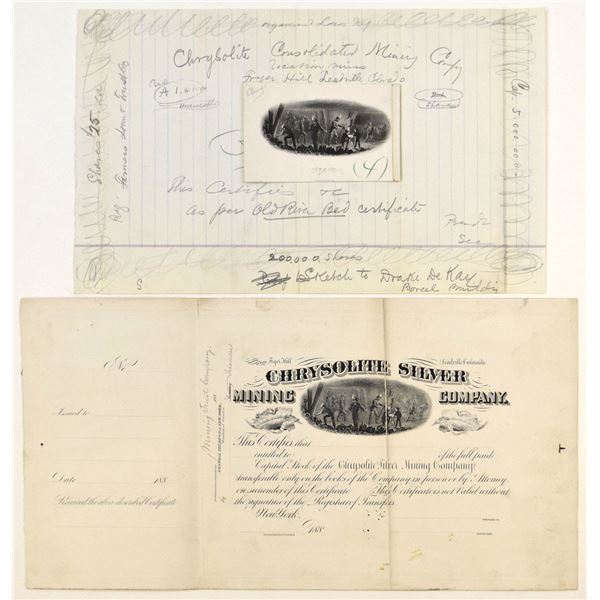 organized Laws N.Y.
Chrysolite Consolidated Mining Compy
Location mines
Fryer Hill Leadville Colorado
No
A 1.
Shares
Cap. 5.000.000
Shares $25. each
Reg. Farmers Loan & Trust Co
(4)
This Certifies &c
as per Old River Bed certificate
Presdt
Sec
200,000 Shares
Sketch to Drake De Kay
Boreel Building
S
No.
Issued to
Date 188
Received the above described Certificate
Mining Trust Company
Fryer Hill Leadville Colorado
CHRYSOLITE SILVER
MINING COMPANY.
This Certifies that
entitled to of the full paid
Capital Stock of the Chrysolite Silver Mining Company
transferable only on the books of the Company in person or by Attorney
on surrender of this Certificate. This Certificate is not Valid without
the signature of the Registrar of Transfers.
New York 188